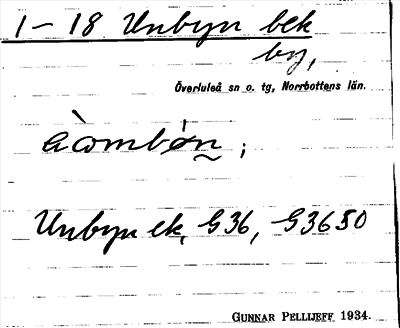 1–18 Unbyn bek
by,
Överluleå sn o. tg, Norrbottens län.
Unbyn ek, G36, G3650
GUNNAR PELLIJEFF 1934.